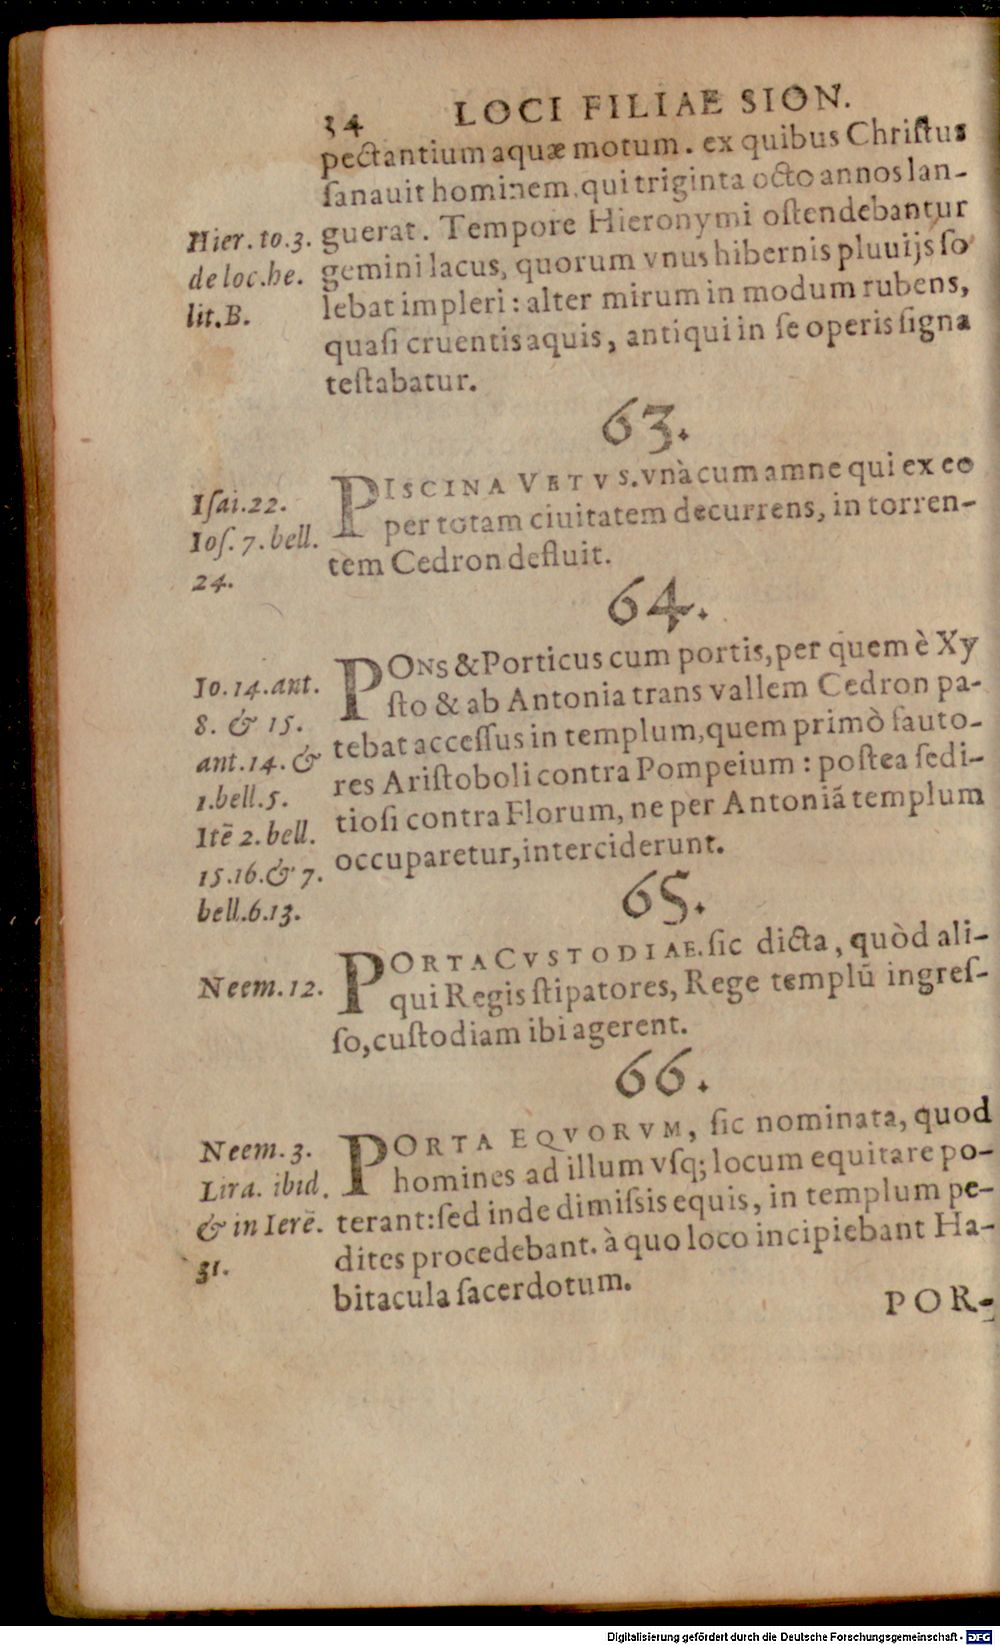 34 LOCI FILIAE SION.
pectantium aquæ motum. ex quibus Chriſtus
ſanauit hominem, qui triginta octo annos lan-
guerat. Tempore Hieronymi oſtendebantur
gemini lacus, quorum vnus hibernis pluuijs ſo
lebat impleri: alter mirum in modum rubens,
quaſi cruentis aquis, antiqui in ſe operis ſigna
teſtabatur.
Hier. to.3.
de loc.he.
lit.B.
63.
PISCINA VETVS. vnà cum amne qui ex eo
per totam ciuitatem decurrens, in torren-
tem Cedron defluit.
Iſai.22.
Ioſ. 7. bell.
24.
64.
PONS & Porticus cum portis, per quem è Xy
ſto & ab Antonia trans vallem Cedron pa-
tebat acceſſus in templum, quem primò fauto-
res Ariſtoboli contra Pompeium: poſtea ſedi-
tioſi contra Florum, ne per Antoniā templum
occuparetur, interciderunt.
Io. 14. ant.
8. & 15.
ant. 14. &
1.bell.5.
Itē 2. bell.
15.16.& 7.
bell.6.13.
65.
PORTA CVSTODIAE. ſic dicta, quòd ali-
qui Regis ſtipatores, Rege templū ingreſ-
ſo, cuſtodiam ibi agerent.
Neem.12.
66.
PORTA EQVORVM, ſic nominata, quod
homines ad illum vſq; locum equitare po-
terant: ſed inde dimiſsis equis, in templum pe-
dites procedebant. à quo loco incipiebant Ha-
bitacula ſacerdotum.
Neem. 3.
Lira. ibid.
& in Ierē.
31.
POR-
Digitalisierung gefördert durch die Deutsche Forschungsgemeinschaft - DFG